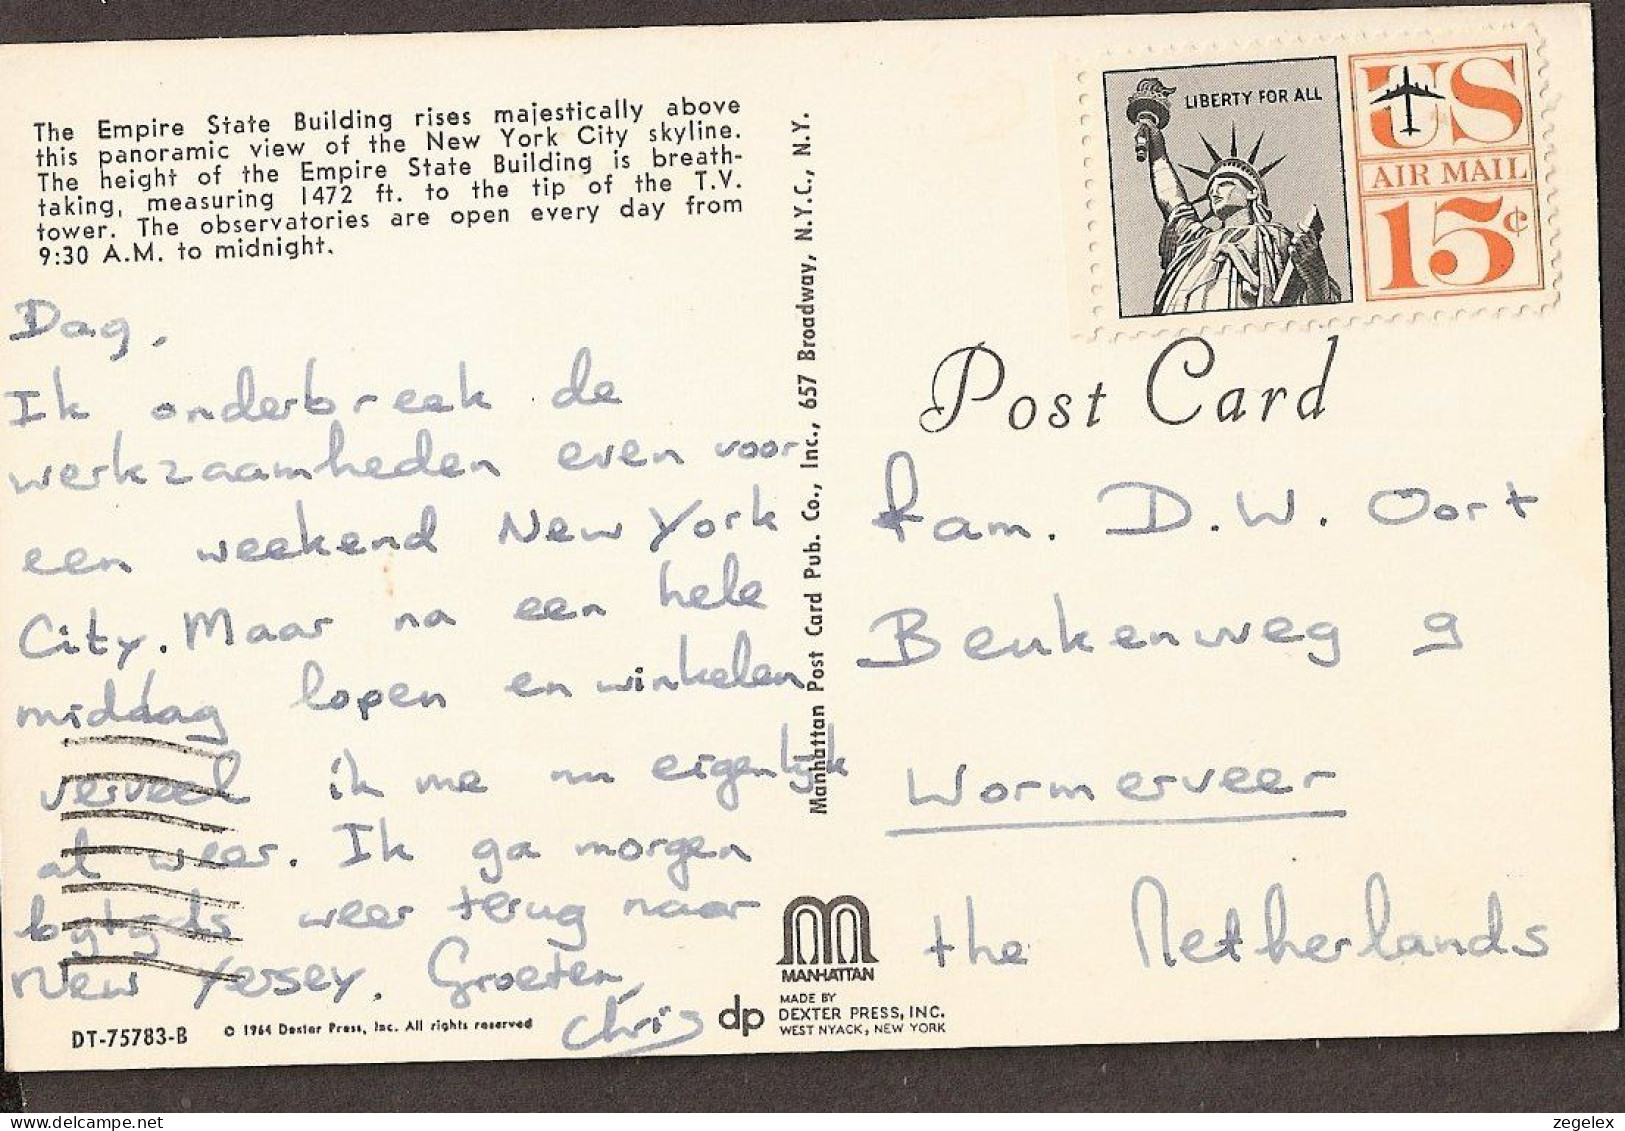 The Empire State Building rises majestically above
this panoramic view of the New York City skyline.
The height of the Empire State Building is breath-
taking, measuring 1472 ft. to the tip of the T.V.
tower. The observatories are open every day from
9:30 A.M. to midnight.
Dag,
Ik onderbreek de
werkzaamheden even voor
een weekend New York
City. Maar na een hele
middag lopen en winkelen
verveel ik me nu eigenlijk
al weer. Ik ga morgen
bytyds weer terug naar
New Yersey. Groeten,
Chris
DT-75783-B
© 1964 Dexter Press, Inc. All rights reserved
Manhattan Post Card Pub. Co., Inc., 657 Broadway, N.Y.C., N.Y.
MANHATTAN
dp
MADE BY
DEXTER PRESS, INC.
WEST NYACK, NEW YORK
LIBERTY FOR ALL
US
AIR MAIL
15¢
Post Card
fam. D.W. Oort
Beukenweg 9
Wormerveer
the Netherlands
zegelex